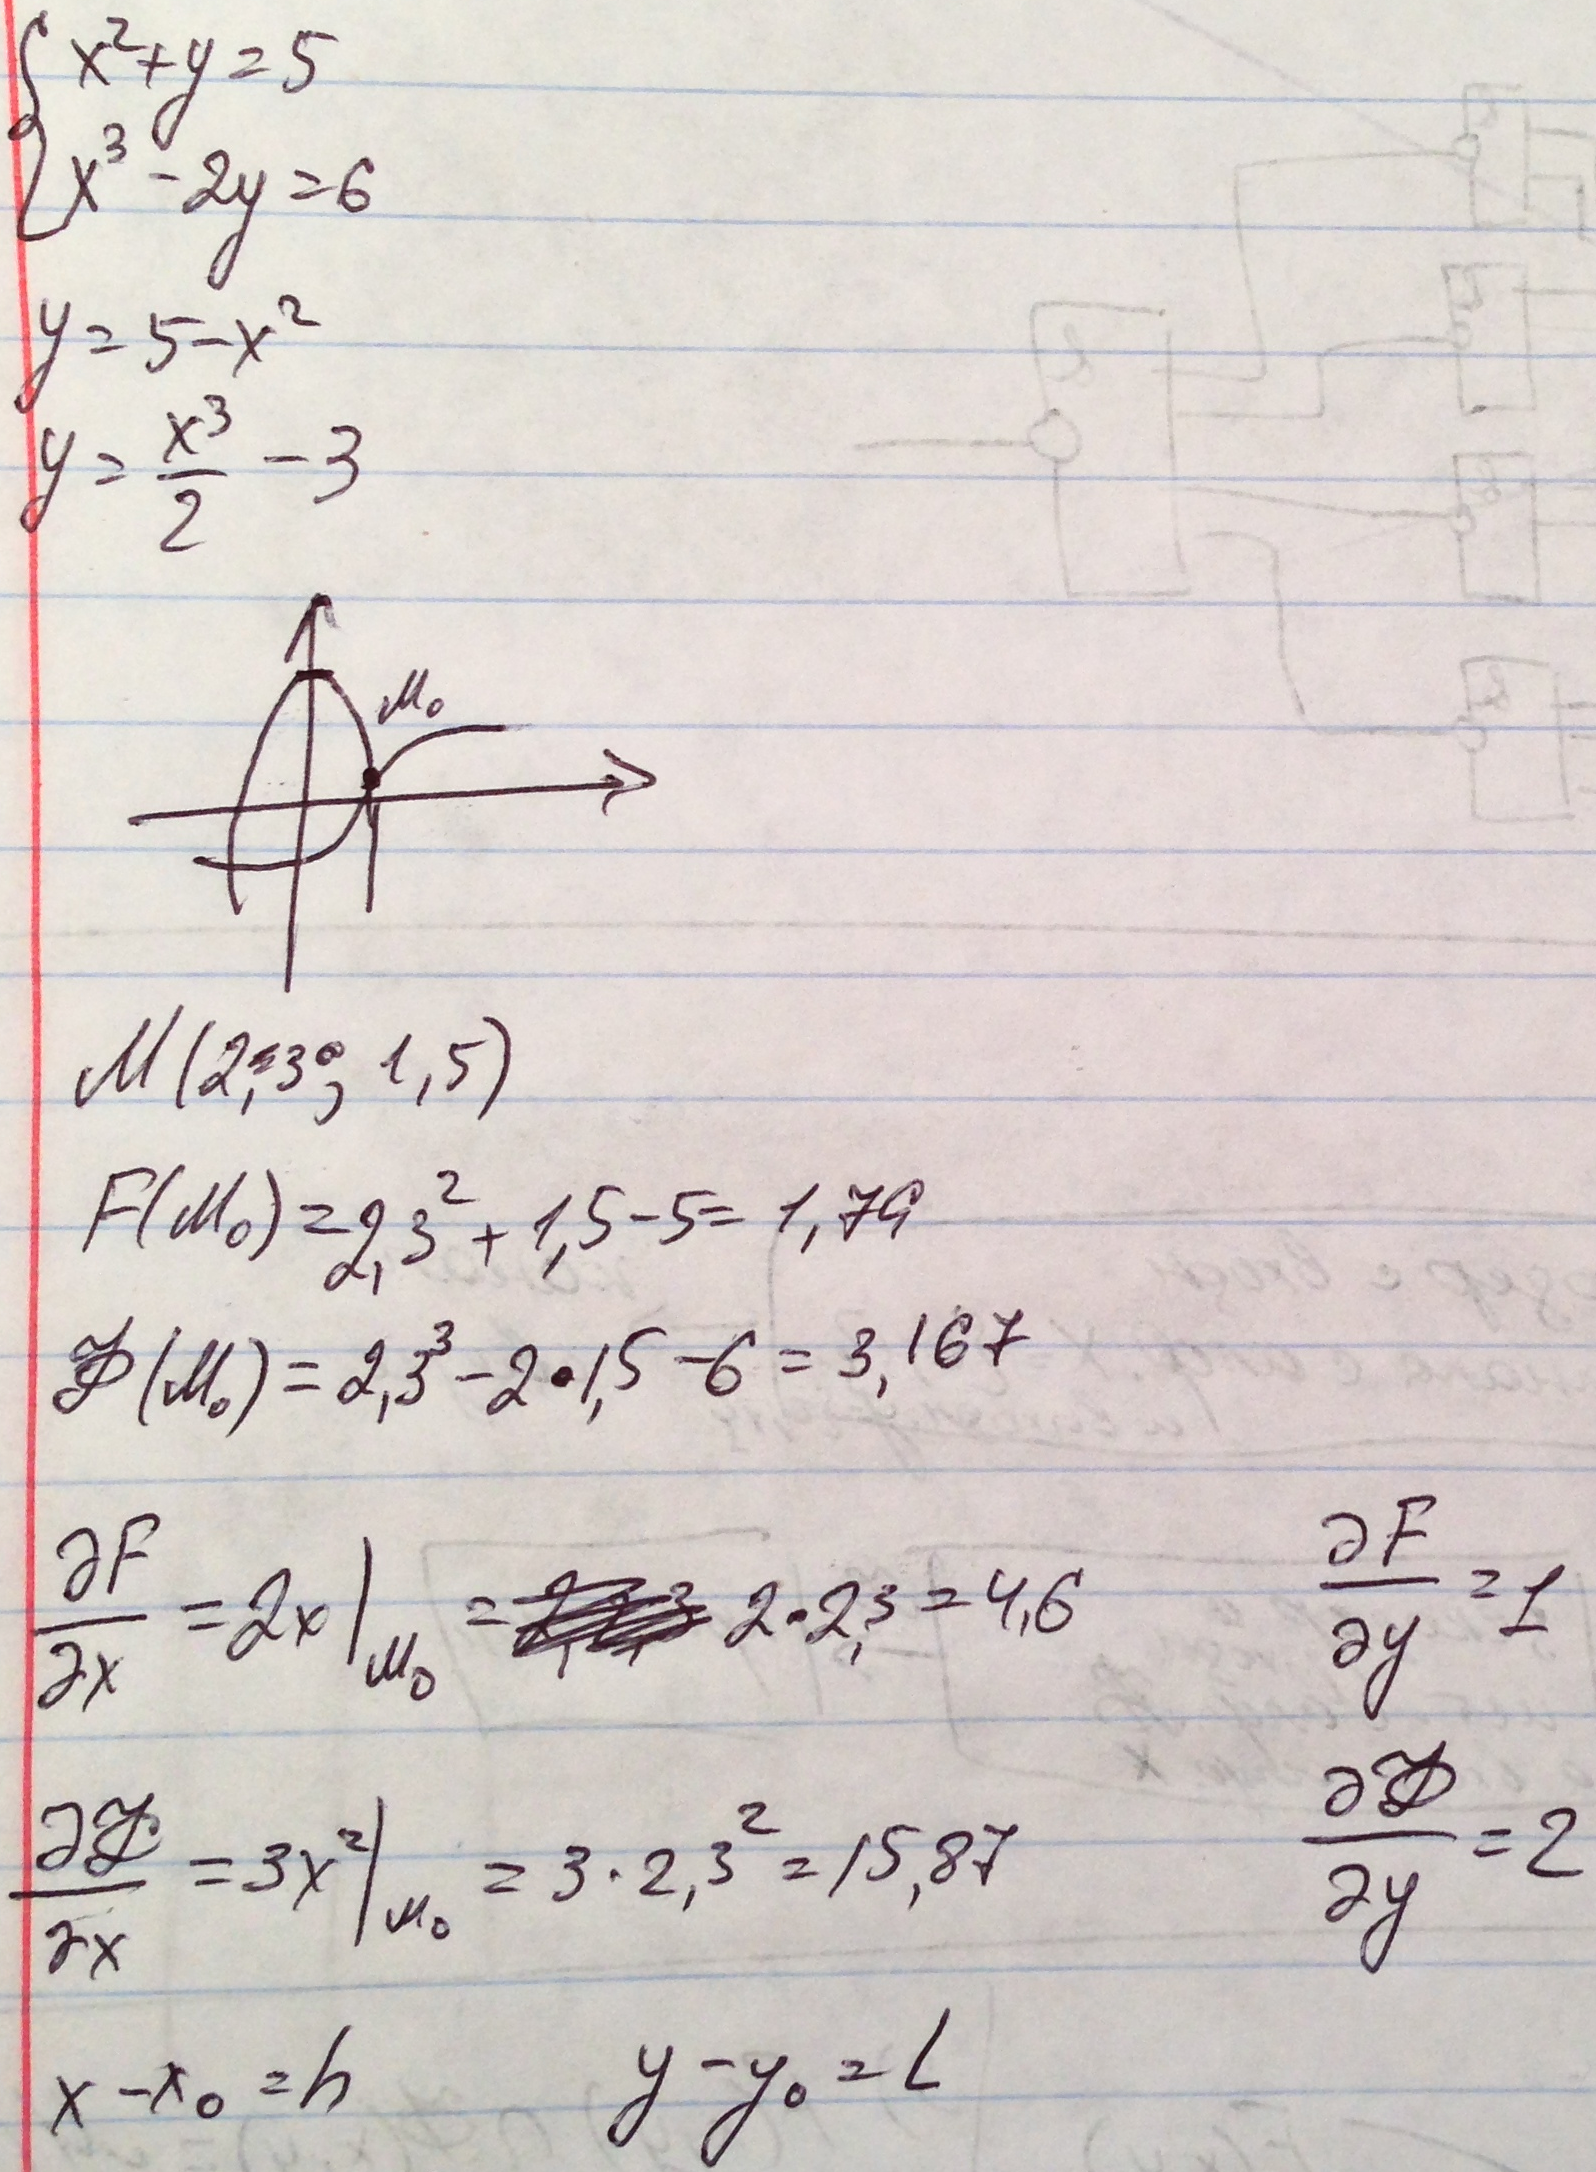 x²+y=5
x³-2y=6
y=5-x²
y=x³/2-3
M₀
M(2,3; 1,5)
F(M₀)=2,3²+1,5-5=1,79
Ф(M₀)=2,3³-2•1,5-6=3,167
∂F/∂x=2x|M₀= 2•2,3=4,6 ∂F/∂y=1
∂Ф/∂x=3x²|M₀=3·2,3²=15,87 ∂Ф/∂y=2
x-x₀=h y-y₀=L